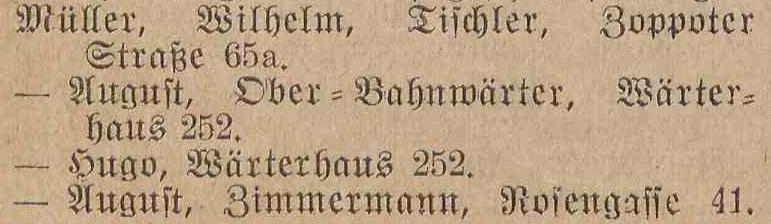 Müller, Wilhelm, Tischler, Zoppoter
Straße 65a.
— August, Ober-Bahnwärter, Wärter-
haus 252.
— Hugo, Wärterhaus 252.
— August, Zimmermann, Rosengasse 41.